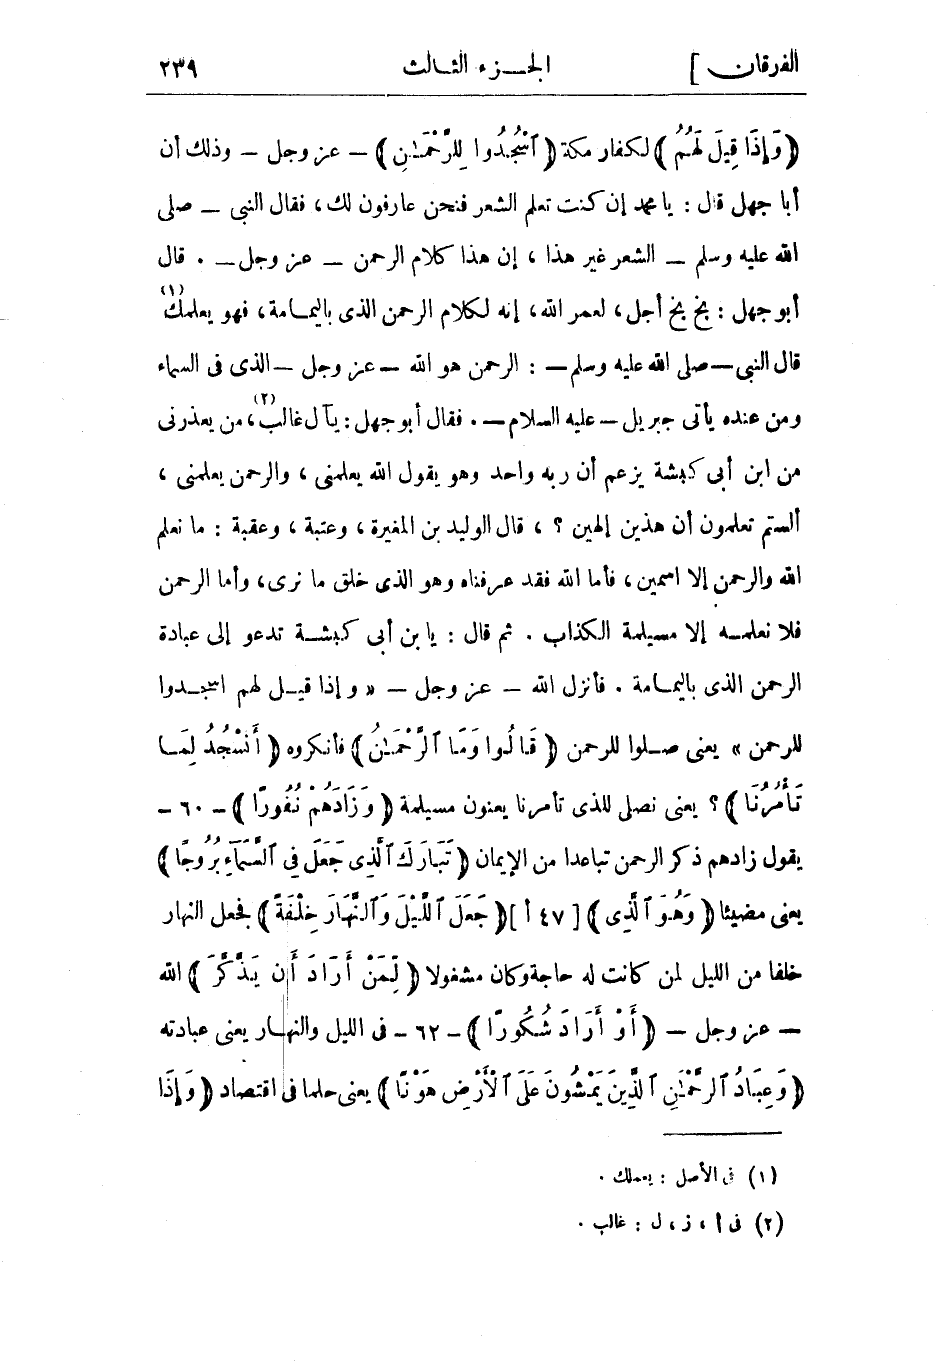 الفرقان ]
الجزء الثالث
٢٣٩
﴿ وَإِذَا قِيلَ لَهُمُ ﴾ لكفار مكة ﴿ ٱسْجُدُوا لِلرَّحْمَـٰنِ ﴾ – عز وجل – وذلك أن
أبا جهل قال : يا محمد إن كنت تعلم الشعر فنحن عارفون لك ، فقال النبى – صلى
الله عليه وسلم – الشعر غير هذا ، إن هذا كلام الرحمن – عز وجل – . قال
أبو جهل : بخ بخ أجل ، لعمر الله ، إنه لكلام الرحمن الذى باليمامة ، فهو يعلمك (١)
قال النبى – صلى الله عليه وسلم – : الرحمن هو الله – عز وجل – الذى فى السماء
ومن عنده يأتى جبريل – عليه السلام – . فقال أبو جهل : يآل غالب (٢) ، من يعذرنى
من ابن أبى كبشة يزعم أن ربه واحد وهو يقول الله يعلمنى ، والرحمن يعلمنى ،
ألستم تعلمون أن هذين إلهين ؟ ، قال الوليد بن المغيرة ، وعتبة ، وعقبة : ما نعلم
الله والرحمن إلا اسمين ، فأما الله فقد عرفناه وهو الذى خلق ما نرى ، وأما الرحمن
فلا نعلمه إلا مسيلمة الكذاب . ثم قال : يا بن أبى كبشة تدعو إلى عبادة
الرحمن الذى باليمامة . فأنزل الله – عز وجل – « وإذا قيل لهم اسجدوا
للرحمن » يعنى صلوا للرحمن ﴿ قَالُوا وَمَا ٱلرَّحْمَـٰنُ ﴾ فأنكروه ﴿ أَنَسْجُدُ لِمَا
تَأْمُرُنَا ﴾ ؟ يعنى نصلى للذى تأمرنا يعنون مسيلمة ﴿ وَزَادَهُمْ نُفُورًا ﴾ – ٦٠ –
يقول زادهم ذكر الرحمن تباعدا من الإيمان ﴿ تَبَارَكَ ٱلَّذِى جَعَلَ فِى ٱلسَّمَآءِ بُرُوجًا ﴾
يعنى مضيئا ﴿ وَهُوَ ٱلَّذِى ﴾ [ ٤٧ أ ] ﴿ جَعَلَ ٱللَّيْلَ وَٱلنَّهَارَ خِلْفَةً ﴾ فجعل النهار
خلفا من الليل لمن كانت له حاجة وكان مشغولا ﴿ لِّمَنْ أَرَادَ أَن يَذَّكَّرَ ﴾ الله
– عز وجل – ﴿ أَوْ أَرَادَ شُكُورًا ﴾ – ٦٢ – فى الليل والنهار يعنى عبادته
﴿ وَعِبَادُ ٱلرَّحْمَـٰنِ ٱلَّذِينَ يَمْشُونَ عَلَى ٱلْأَرْضِ هَوْنًا ﴾ يعنى حلما فى اقتصاد ﴿ وَإِذَا
(١) فى الأصل : يعملك .
(٢) فى أ ، ز ، ل : غالب .